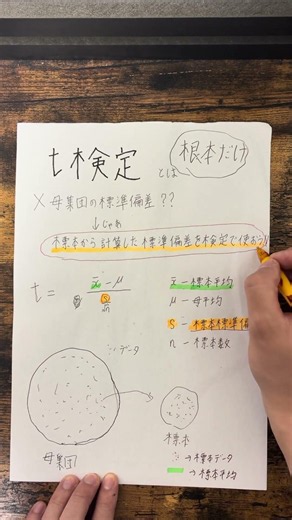 t検定とは
根本だけ
× 母集団の標準偏差??
↓じゃあ
標本から計算した標準偏差を検定で使おう!
t = x̄ - μ / s / √n
x̄ - 標本平均
μ - 母平均
s - 標本標準偏
n - 標本数
データ
母集団
標本
→標本データ
→標本平均